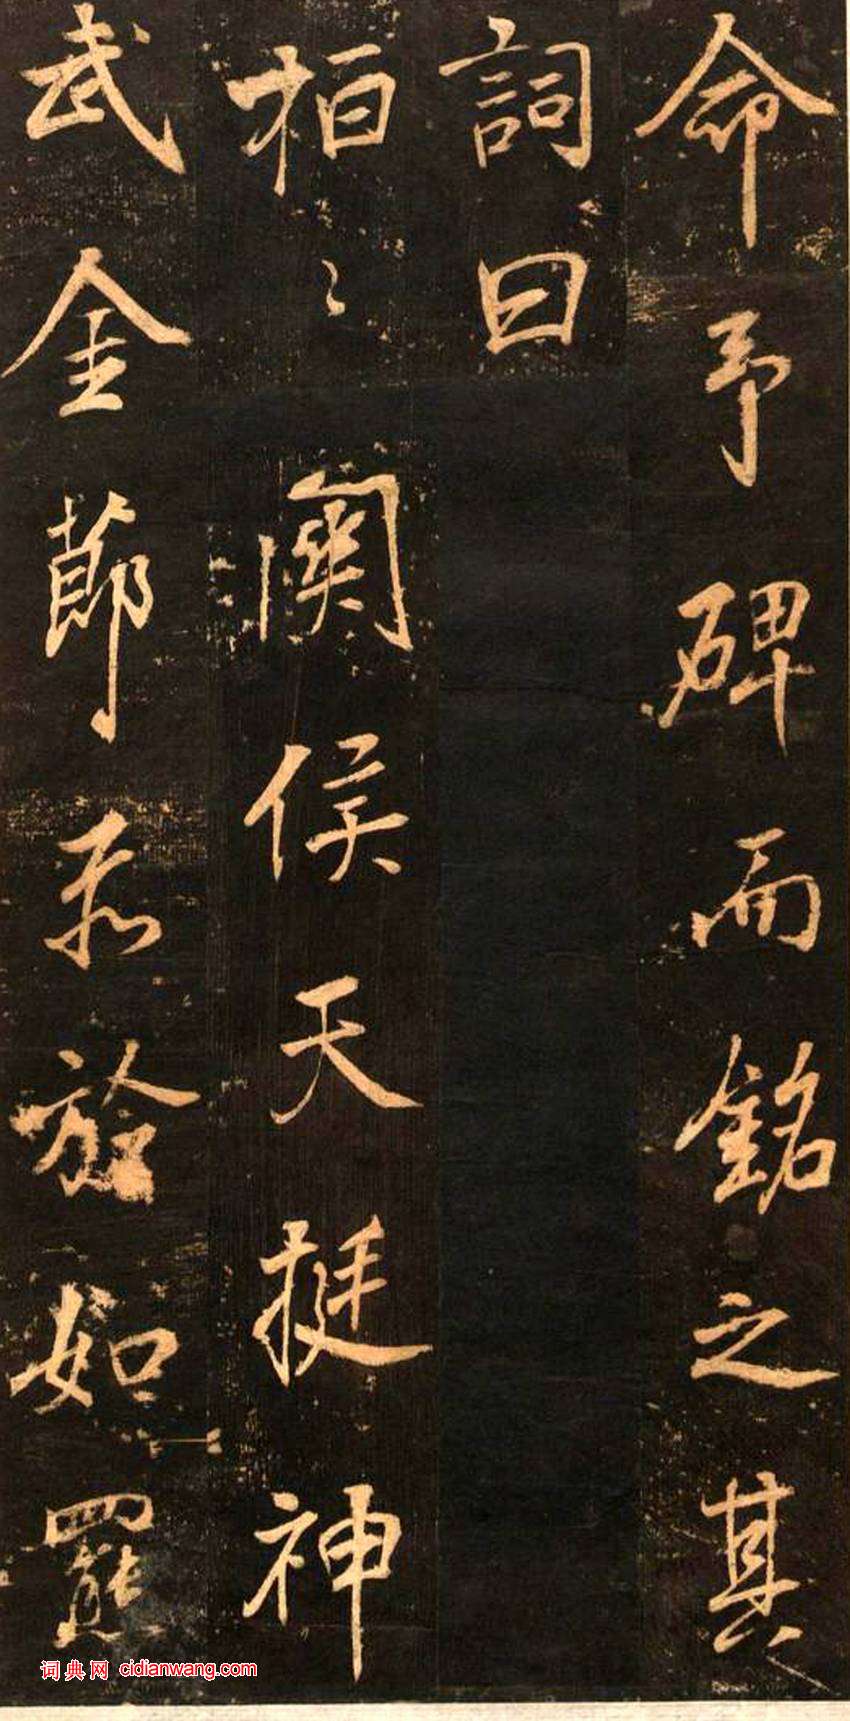 命予碑而銘之其
詞曰
桓〻侯天挺神
武金節如羆
词典网 cidianwang.com